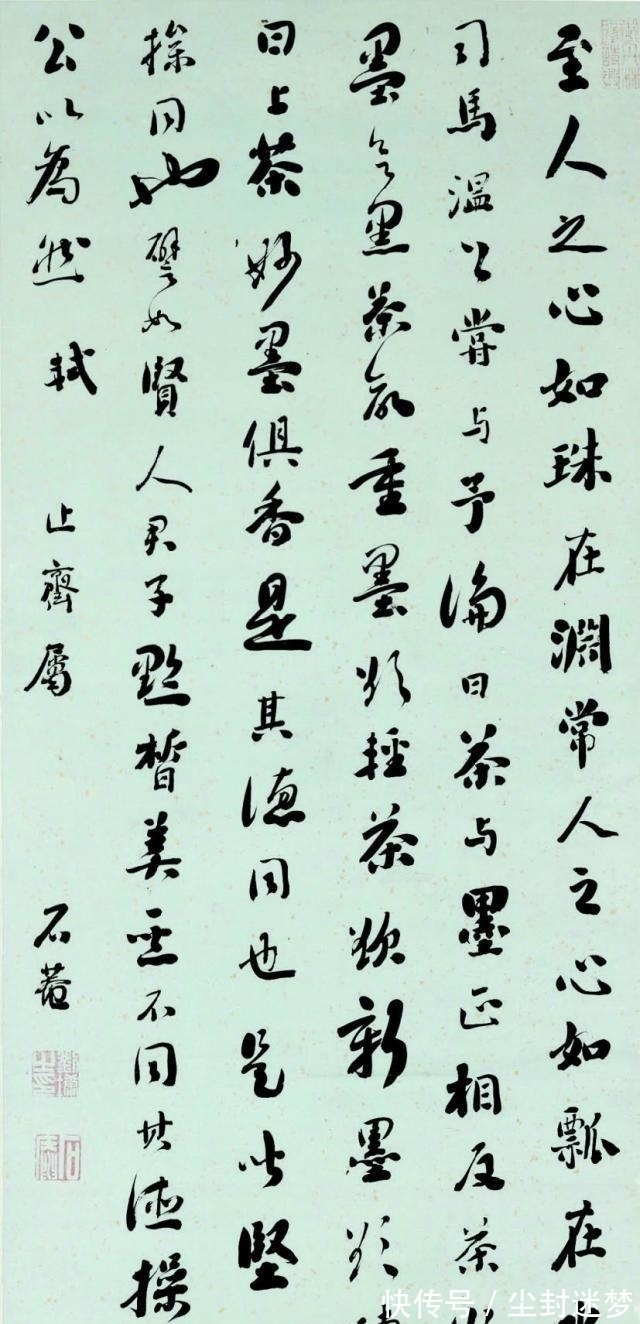 至人之心如珠在淵常人之心如瓢在
司馬溫公嘗與予論曰茶與墨正相反茶
墨欲黑茶欲重墨欲輕茶欲新墨欲
曰上茶妙墨俱香是其德同也是皆堅
操同也譬如賢人君子黔皙美惡不同其德操
公以為然 軾
止齋屬
石菴
快传号／尘封迷梦